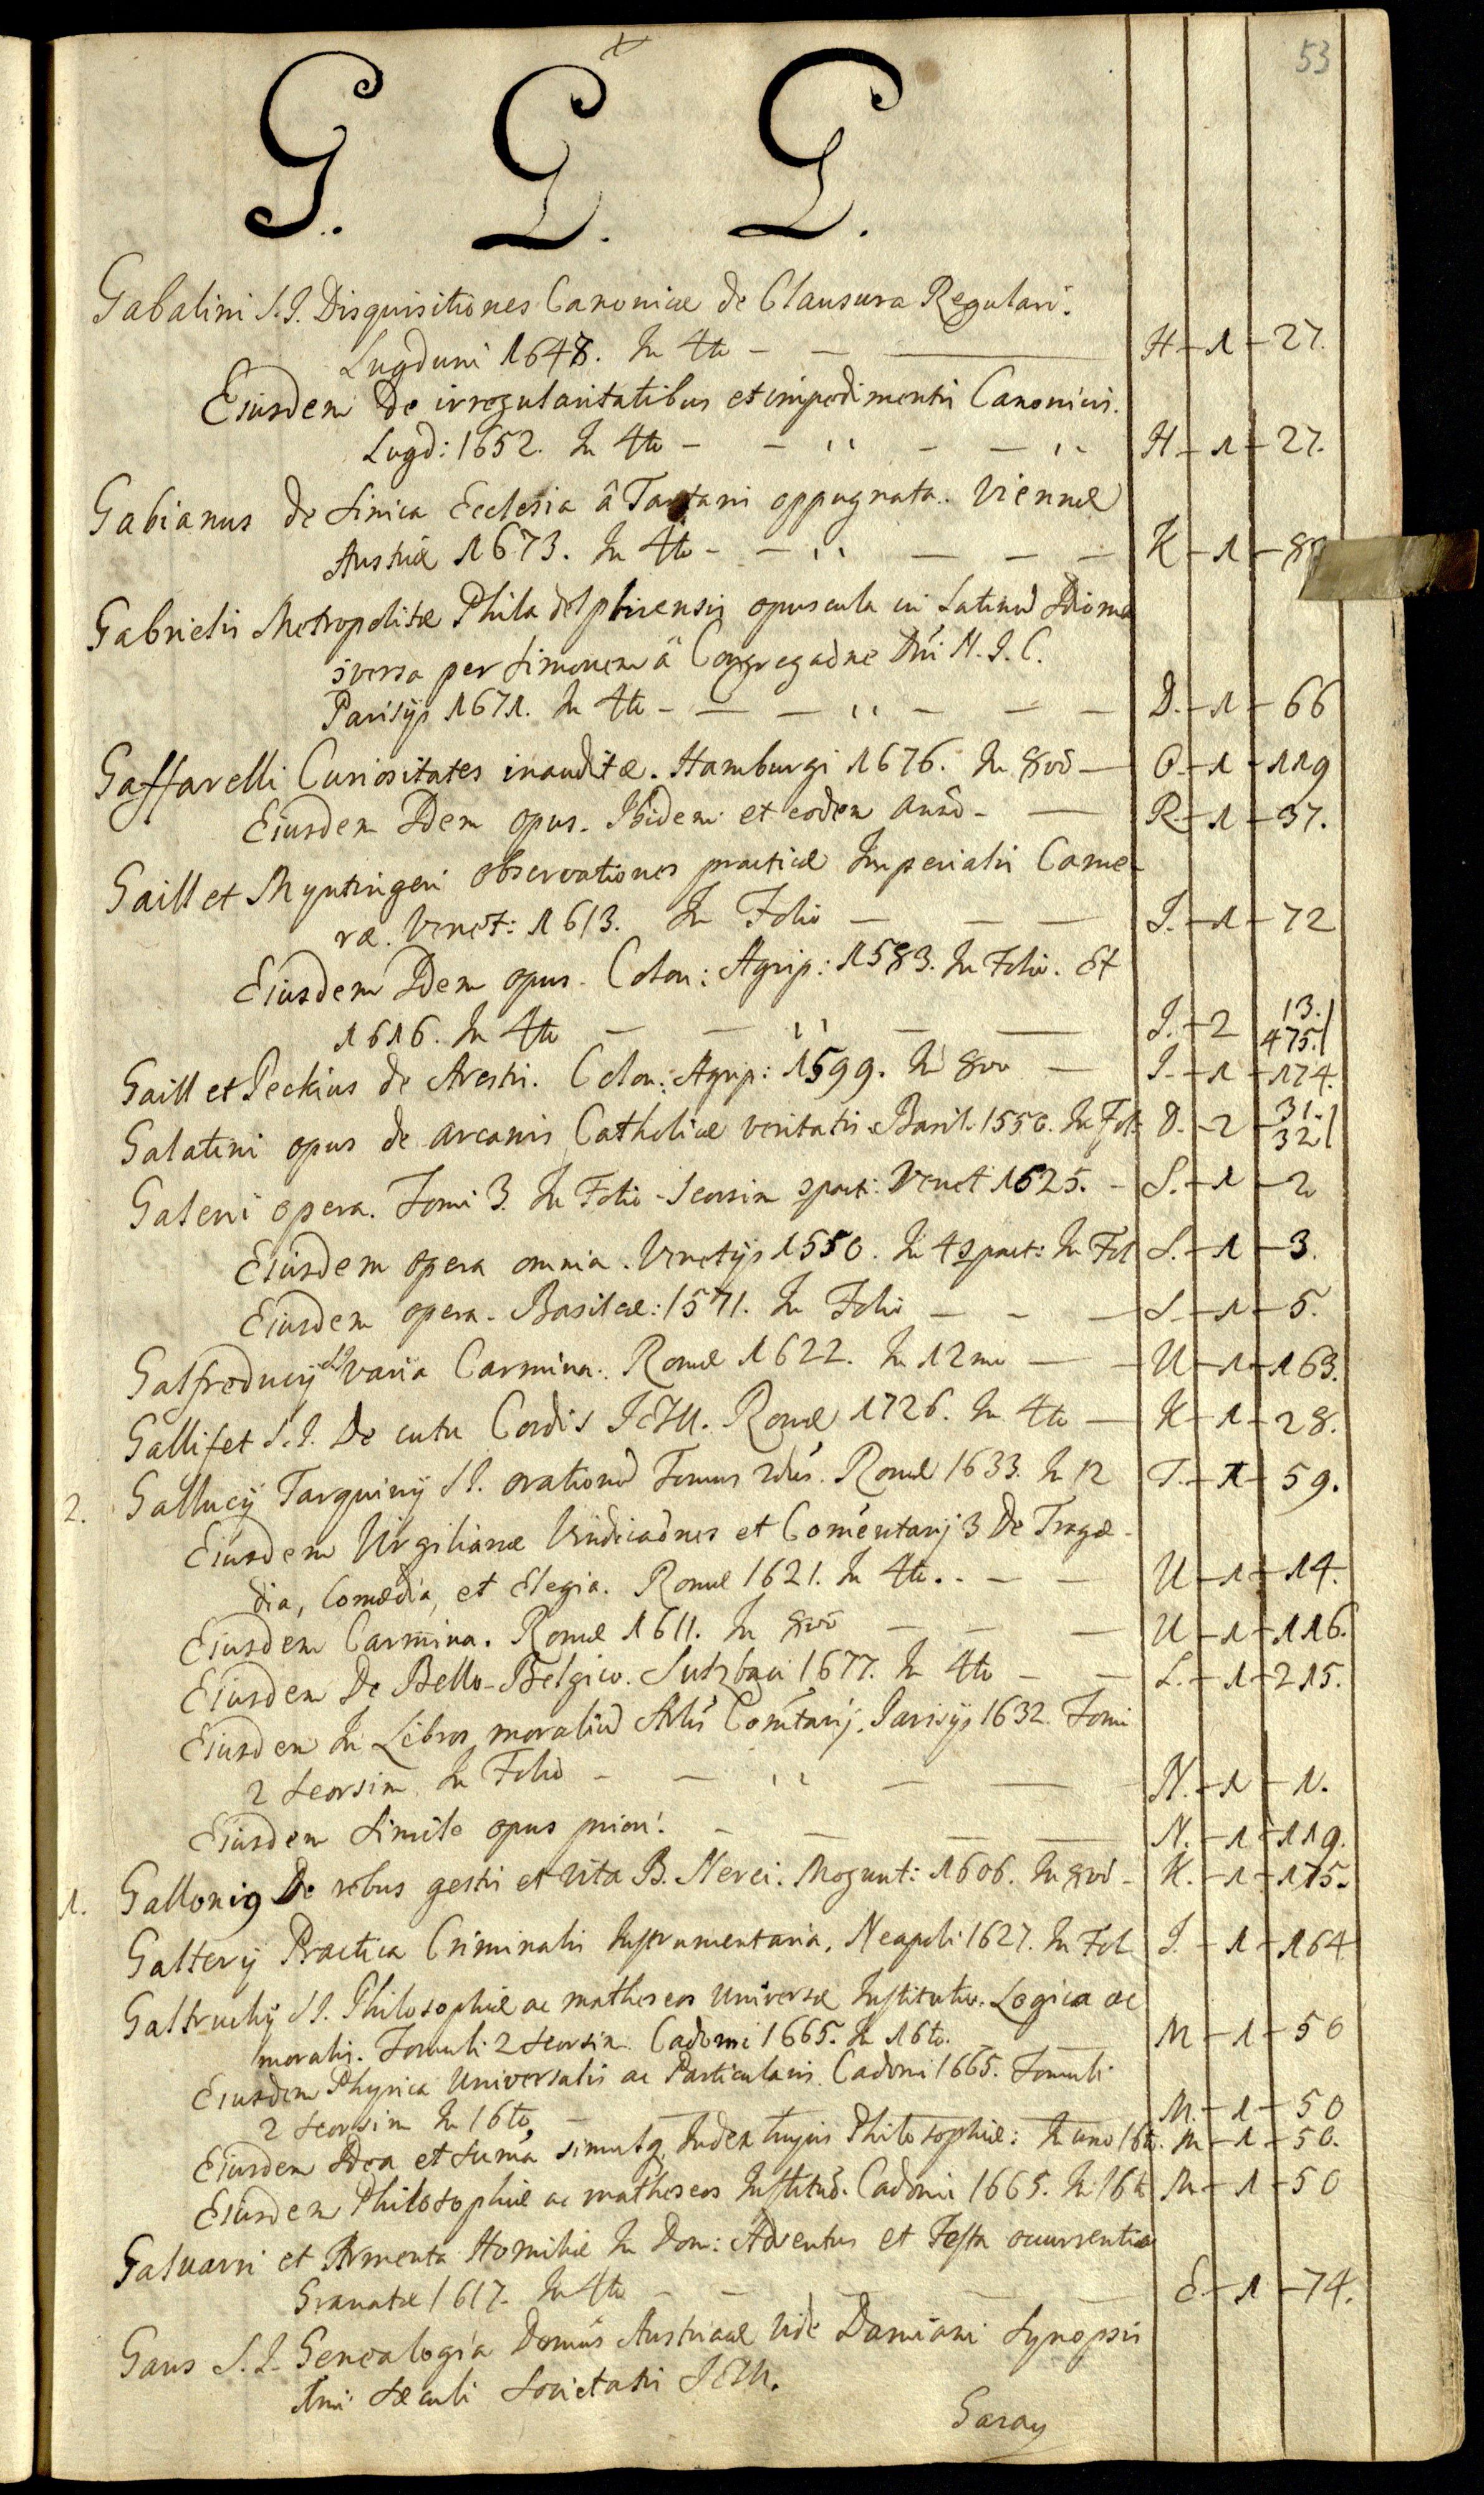 53
G. G. G.
Gabalini S.I. Disquisitiones Canonicæ de Clausura Regulari.
Lugduni 1648. In 4to — — — H - 1 - 27.
Eiusdem De irregularitatibus et impedimentis Canonicis.
Lugd: 1652. In 4to - - ,, - - ,, H - 1 - 27.
Gabianus de Sinica Ecclesia â Tartaris oppugnata. Viennæ
Austriæ 1673. In 4to - - ,, - - - K - 1 -
Gabrielis Metropolitæ Philadelphiensis opuscula in Latinū Idioma
versa per Simonem â Congregaōne Dñi N. I. C.
Parisijs 1671. In 4to - - - ,, - - - D. - 1 - 66
Gaffarelli Curiositates inauditæ. Hamburgi 1676. In 8vō - O. - 1 - 119
Eiusdem Idem opus. Ibidem et eodem annō - - R - 1 - 37.
Gaill et Mynsingeri observationes practicæ Imperialis Came-
ræ. Venet: 1613. In Folio - - - I. - 1 - 72
Eiusdem Idem opus. Colon: Agrip: 1583. In Folio. Et
1616. In 4to - - ,, - - I. - 2 13. 475.
Gaill et Peckius de Arestis. Colon: Agrip: 1599. In 8vo - I. - 1 - 174.
Galatini opus de arcanis Catholicæ veritatis. Basil. 1550. In Fol: D. - 2 - 31. 32
Galeni opera. Tomi 3. In Folio - Seorsim Venet 1625. - S. - 1 - 2
Eiusdem opera omnia. Venetijs 1550. In 4 In Fol S. - 1 - 3.
Eiusdem opera. Basileæ: 1571. In Folio - - - S. - 1 - 5.
Galfreducij SI varia Carmina. Romæ 1622. In 12mo - - U - 1 - 163.
Gallifet S.I. De cultu Cordis IESU. Romæ 1726. In 4to - K - 1 - 28.
2. Gallucij Tarquinij SI. orationū Tomus 2dus. Romæ 1633. In 12 T. - 1 - 59.
Eiusdem Virgilianæ Vindicaōnes et Comēntarij 3 De Tragæ-
dia, Comædia, et Elegia. Romæ 1621. In 4to. - - - U - 1 - 14.
Eiusdem Carmina. Romæ 1611. In 8vō - - - U - 1 - 116.
Eiusdem De Bello-Belgico. Sulzbaci 1677. In 4to - - L. - 1 - 215.
Eiusdem In Libros moraliū Comtarij. Parisijs 1632. Tomi
2 seorsim In Foliō - - ,, - - - N. - 1 - 1.
Eiusdem Simile opus priori. - - - - N. - 1 - 119.
1. Gallonig De rebus gestis et vita B. Nerei. Mogunt: 1606. In 8vō - K. - 1 - 175.
Galterij Practica Criminalis Instrumentaria. Neapoli 1627. In Fol I. - 1 - 164
Galtruchij SI. Philosophiæ ac matheseos Universæ Institutio. Logica ac
moralis. Tomuli 2 seorsim. Cadomi 1665. In 16to. - - M - 1 - 50
Eiusdem Physica Universalis ac Particularis. Cadomi 1665. Tomuli
2 seorsim In 16to, - - - M. - 1 - 50
Eiusdem Idea et Suma simulq Index hujus Philosophiæ: In uno 16to. M - 1 - 50.
Eiusdem Philosophiæ ac matheseos Institutō. Cadomi 1665. In 16to M - 1 - 50
Galvarri et Armenta Homiliæ In Dom: Adventus et Festa occurrentia
Granatæ 1617. In 4to - - - - E - 1 - 74.
Gans S.I. Genealogia Domûs Austriacæ vide Damiani Synopsis
Imi Sæculi Societatis IESU.
Garay